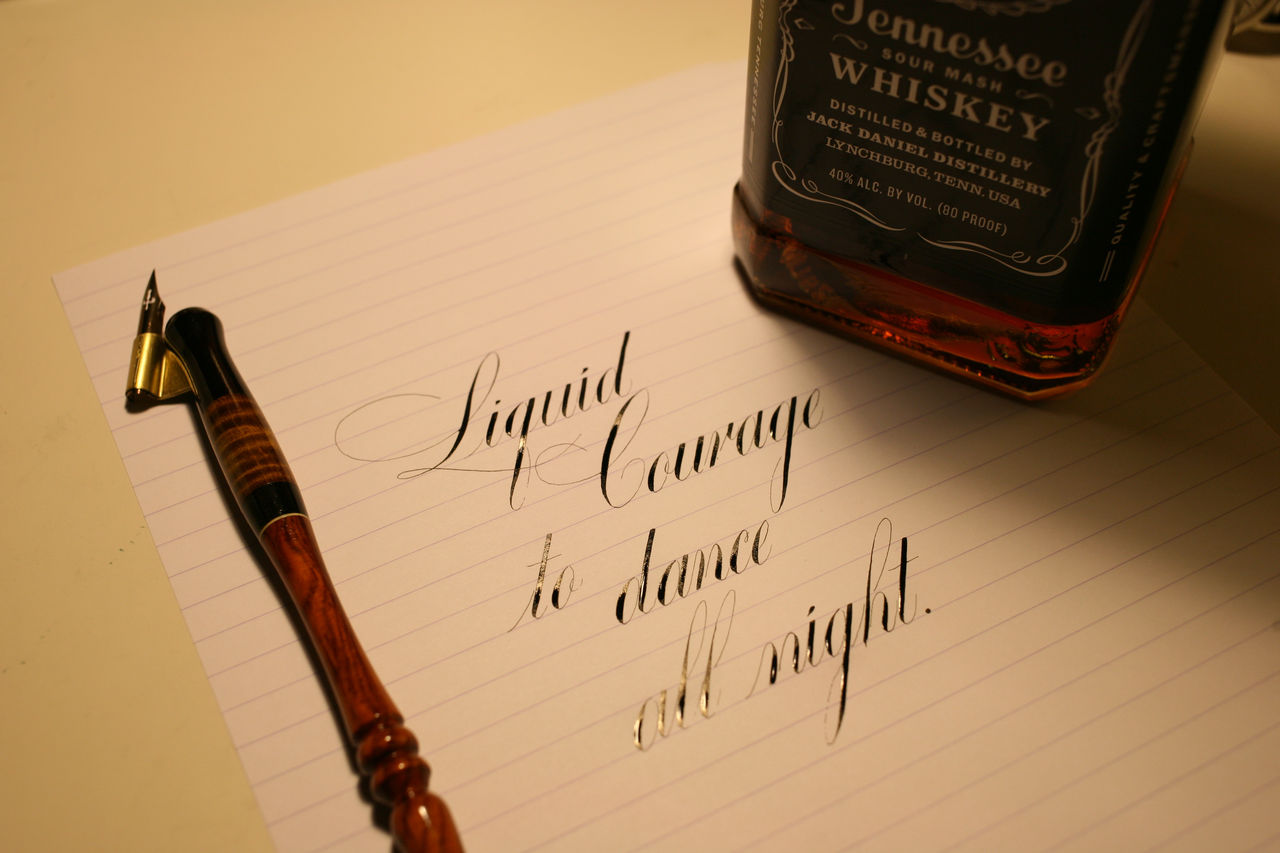 Tennessee
SOUR MASH
WHISKEY
DISTILLED & BOTTLED BY
JACK DANIEL DISTILLERY
LYNCHBURG, TENN. USA
40% ALC. BY VOL. (80 PROOF)
QUALITY & CRAFTSMANSHIP
TENNESSEE
Liquid
Courage
to dance
all night.